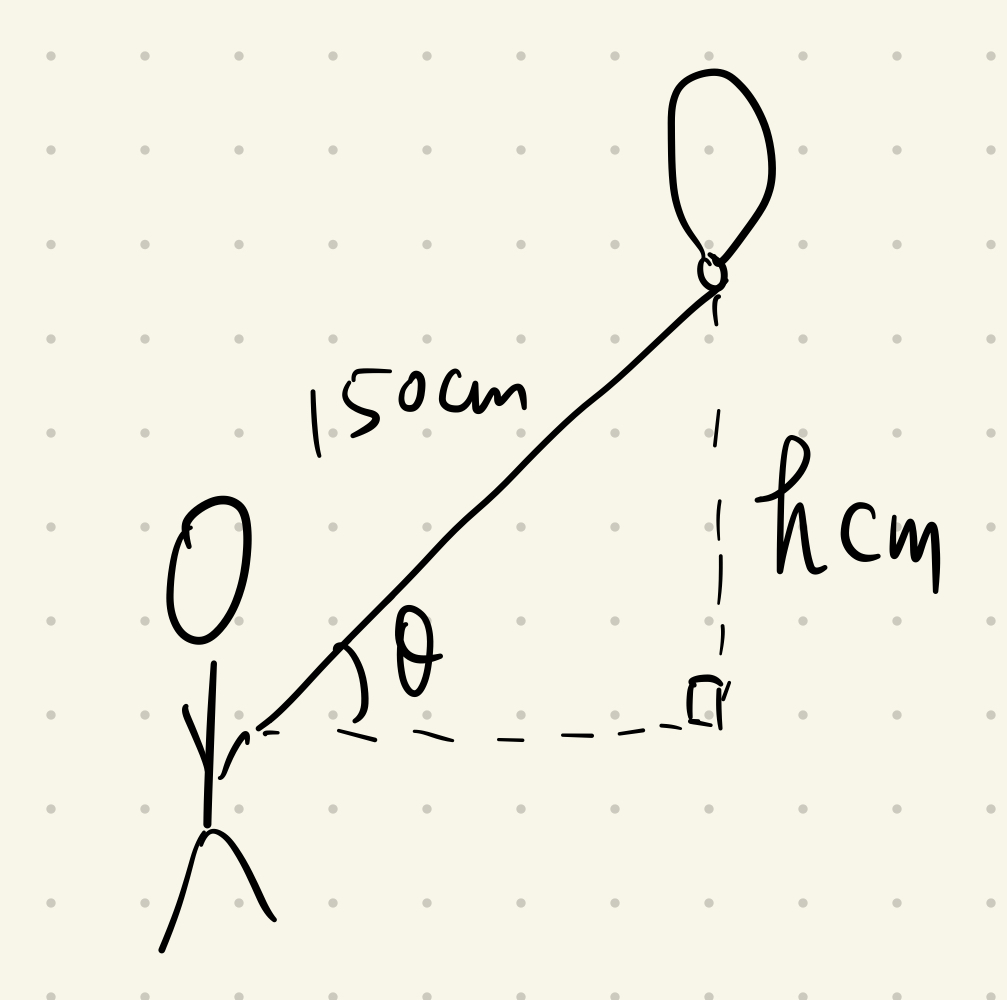 150cm
hcm
θ